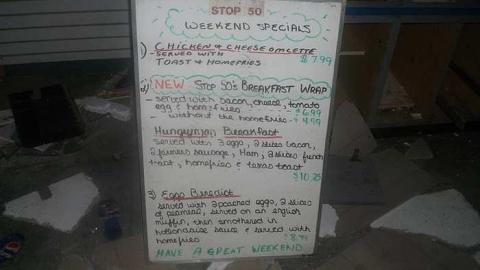 STOP 50
WEEKEND SPECIALS
1) CHICKEN & CHEESE OMLETTE
- SERVED WITH $7.99
TOAST & HOMEFRIES
2) NEW STOP 50'S BREAKFAST WRAP
- served with bacon, cheese, tomato
egg & homefries - $6.99
- without the homefries - $4.99
Hungryman Breakfast
served with 3 eggs, 2 slices bacon,
2 farmers sausage, Ham, 2 slices french
toast, homefries & texas toast
$10.25
3) Eggs Benedict
served with 2 poached eggs, 2 slices
of peameal, served on an english
muffin, then smothered in
hollandaise sauce & served with
homefries $8.99
HAVE A GREAT WEEKEND